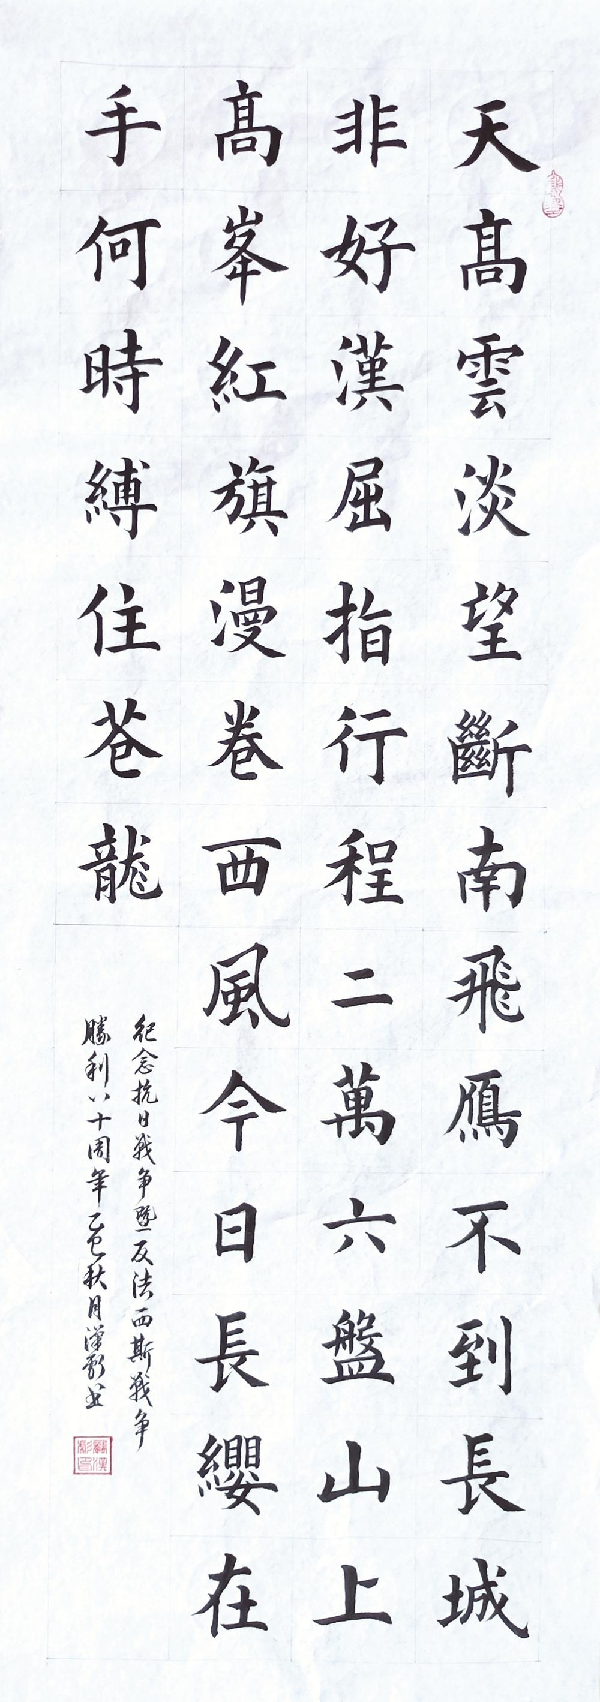 天高雲淡望斷南飛鴈不到長城
非好漢屈指行程二萬六盤山上
高峯紅旗漫卷西風今日長纓在
手何時縛住苍龍
紀念抗日戰争暨反法西斯戰争
勝利八十周年乙巳秋月漢彰书